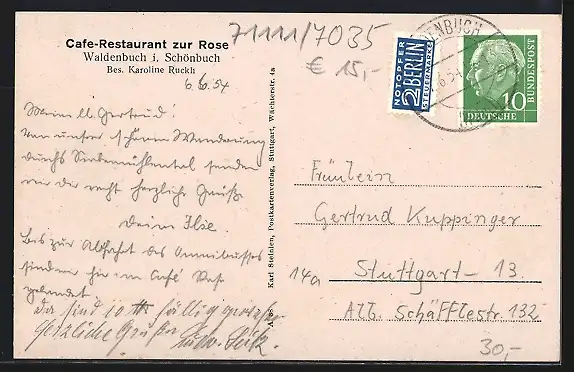 71111/7035
€ 15,-
Cafe-Restaurant zur Rose
Waldenbuch i. Schönbuch
Bes. Karoline Ruckh
6.6.54
Meine lb. Gertrud!
Von unserer schönen Wanderung
durchs Siebenmühlental senden
wir dir recht herzliche Grüße
Deine Ilse
Bis zur Abfahrt des Omnibusses
sind wir hier im Café Rose
gelandet.
da sind 10
herzliche Grüße
Karl Steinlen, Postkartenverlag, Stuttgart, Wächterstr. 4a
NOTOPFER
2 BERLIN
STEUERMARKE
DENBUCH
6.54
10
DEUTSCHE
BUNDESPOST
Fräulein
Gertrud Kuppinger
14a Stuttgart-13.
Alb. Schäfflestr. 132
30,-